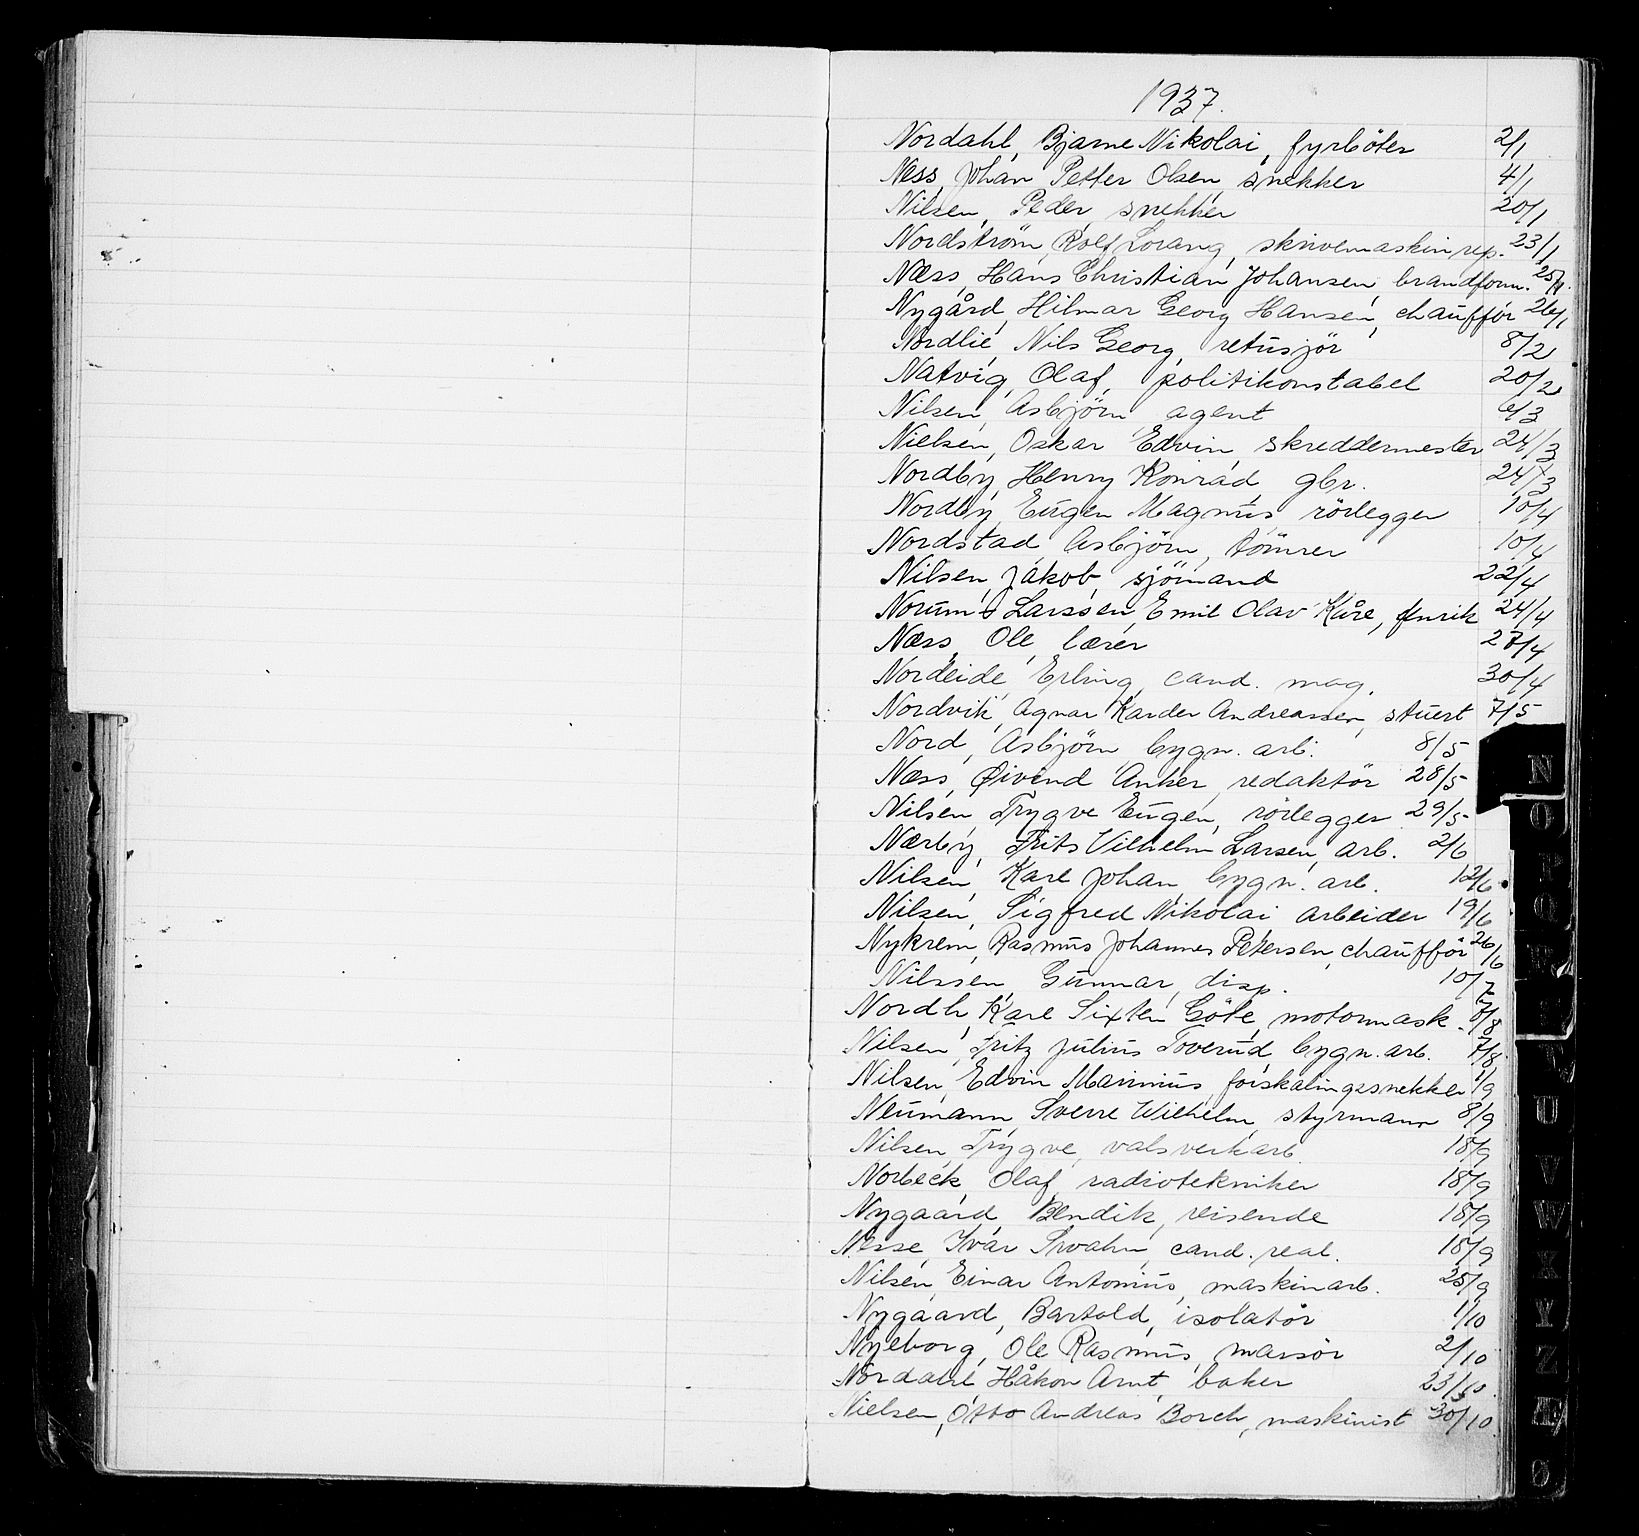 1937.
Nordahl, Bjarne Nikolai, fyrböter 2/1
Ness, Johan Petter Olsen, snekker 4/1
Nilsen, Peder snekker 20/1
Nordström, Rolf Lorang, skrivemaskinrep. 23/1
Næss, Hans Christian Johansen, brandform. 25/1
Nygård, Hilmar Georg Hansen, chaufför 26/1
Nordlie, Nils Georg, retusjör 8/2
Natvig, Olaf, politikonstabel 20/2
Nilsen, Asbjörn agent 6/3
Nielsen, Oskar Edvin, skreddermester 24/3
Nordby, Henry Konrad, gbr. 24/3
Nordby, Eugen Magnus rörlegger 10/4
Nordstad Asbjörn, tömrer 10/4
Nilsen, Jakob, sjömand 22/4
Norum Larssen, Emil Olav Kåre, fenrik 24/4
Næss, Ole, lærer 27/4
Nordeide, Erling, cand. mag. 30/4
Nordvik, Agnar Karder Andreassen, stuert 7/5
Nord, Asbjörn bygn. arb. 8/5
Næss, Øivind Anker, redaktör 28/5
Nilsen, Trygve Eugen, rörlegger 29/5
Nærby, Frits Vilhelm Larsen, arb. 2/6
Nilsen, Karl Johan, bygn. arb. 12/6
Nilsen, Sigfred Nikolai arbeider 19/6
Nykrem, Rasmus Johannes Petersen, chaufför 26/6
Nilssen, Gunnar, disp. 10/7
Nordh, Karl Sixten Göte, motormask. /8
Nilsen, Fritz Julius Toverud bygn. arb. 7/8
Nilsen, Edvin Marinius, forskalingssnekker 1/9
Neumann, Sverre Wilhelm, styrmann 8/9
Nilsen, Trygve, valsverkarb. 18/9
Norbeck, Olaf, radiotekniker 18/9
Nygaard, Bendik, reisende 18/9
Nesse, Ivar Svoahn, cand. real. 18/9
Nilsen, Einar Antonius, maskinarb. 25/9
Nygaard, Bartold, isolatör 1/10
Nyeborg, Ole Rasmus, massör 2/10
Nordahl, Håkon Arnt, baker 23/10
Nielsen, Otto Andreas Borch, maskinist 30/10
N
O
P
Q
R
S
T
U
V
W
X
Y
Z
Æ
Ø